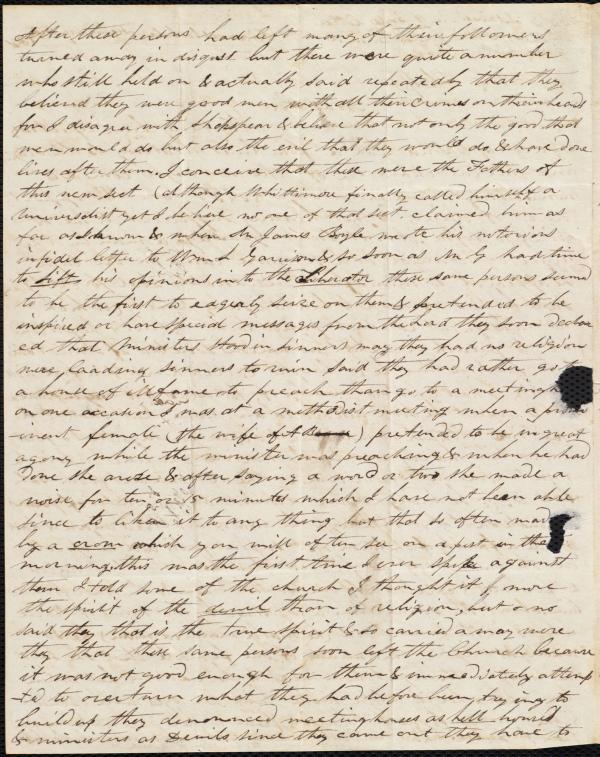 After these persons had left many of their followers
turned away in disgust but there were quite a number
who still held on & actually said repeatedly that they
believd they were good men with all their crimes on their heads
for I disagree with Shakspear & believe that not only the good that
men would do but also the evil that they would do, & have done
lives after them, I conceive that these were the Fathers of
this new sect (although Whittimore finally called himself a
Universalist yet I believe no one of that sect claimed him as
far as I know & when Mr James Boyle wrote his notorious
infidel letter to Wm L Garrison & so soon as Mr G had time
to sift his opinions in to the Liberator these same persons seemd
to be the first to eagerly seize on them & pretended to be
inspired or have special messages from the Lord they soon declar
ed that Ministers stood in sinners way they had no religion
were leading sinners to ruin said they had rather go to
a house of ill fame to preach than go to a meeting
on one occasion I was at a methodist meeting when a prom
inent female (the wife of ) pretended to be in great
agony while the minister was preaching & when he had
done she arose & after saying a word or two she made a
noise for ten or 15 minutes which I have not been able
since to liken it to any thing but that so often made
by a crow which you will often see on a post in the
morning, this was the first time I ever spoke against
them I told some of the church I thought it more
the spirit of the devil than of religion, but o no
said they that is the true spirit & so carried away were
they that these same persons soon left the Church because
it was not good enough for them & immediately attemp
td to overturn what they had before been trying to
build up they denounced meetinghouses as hell houses
& ministers as Devils since they came out they have to